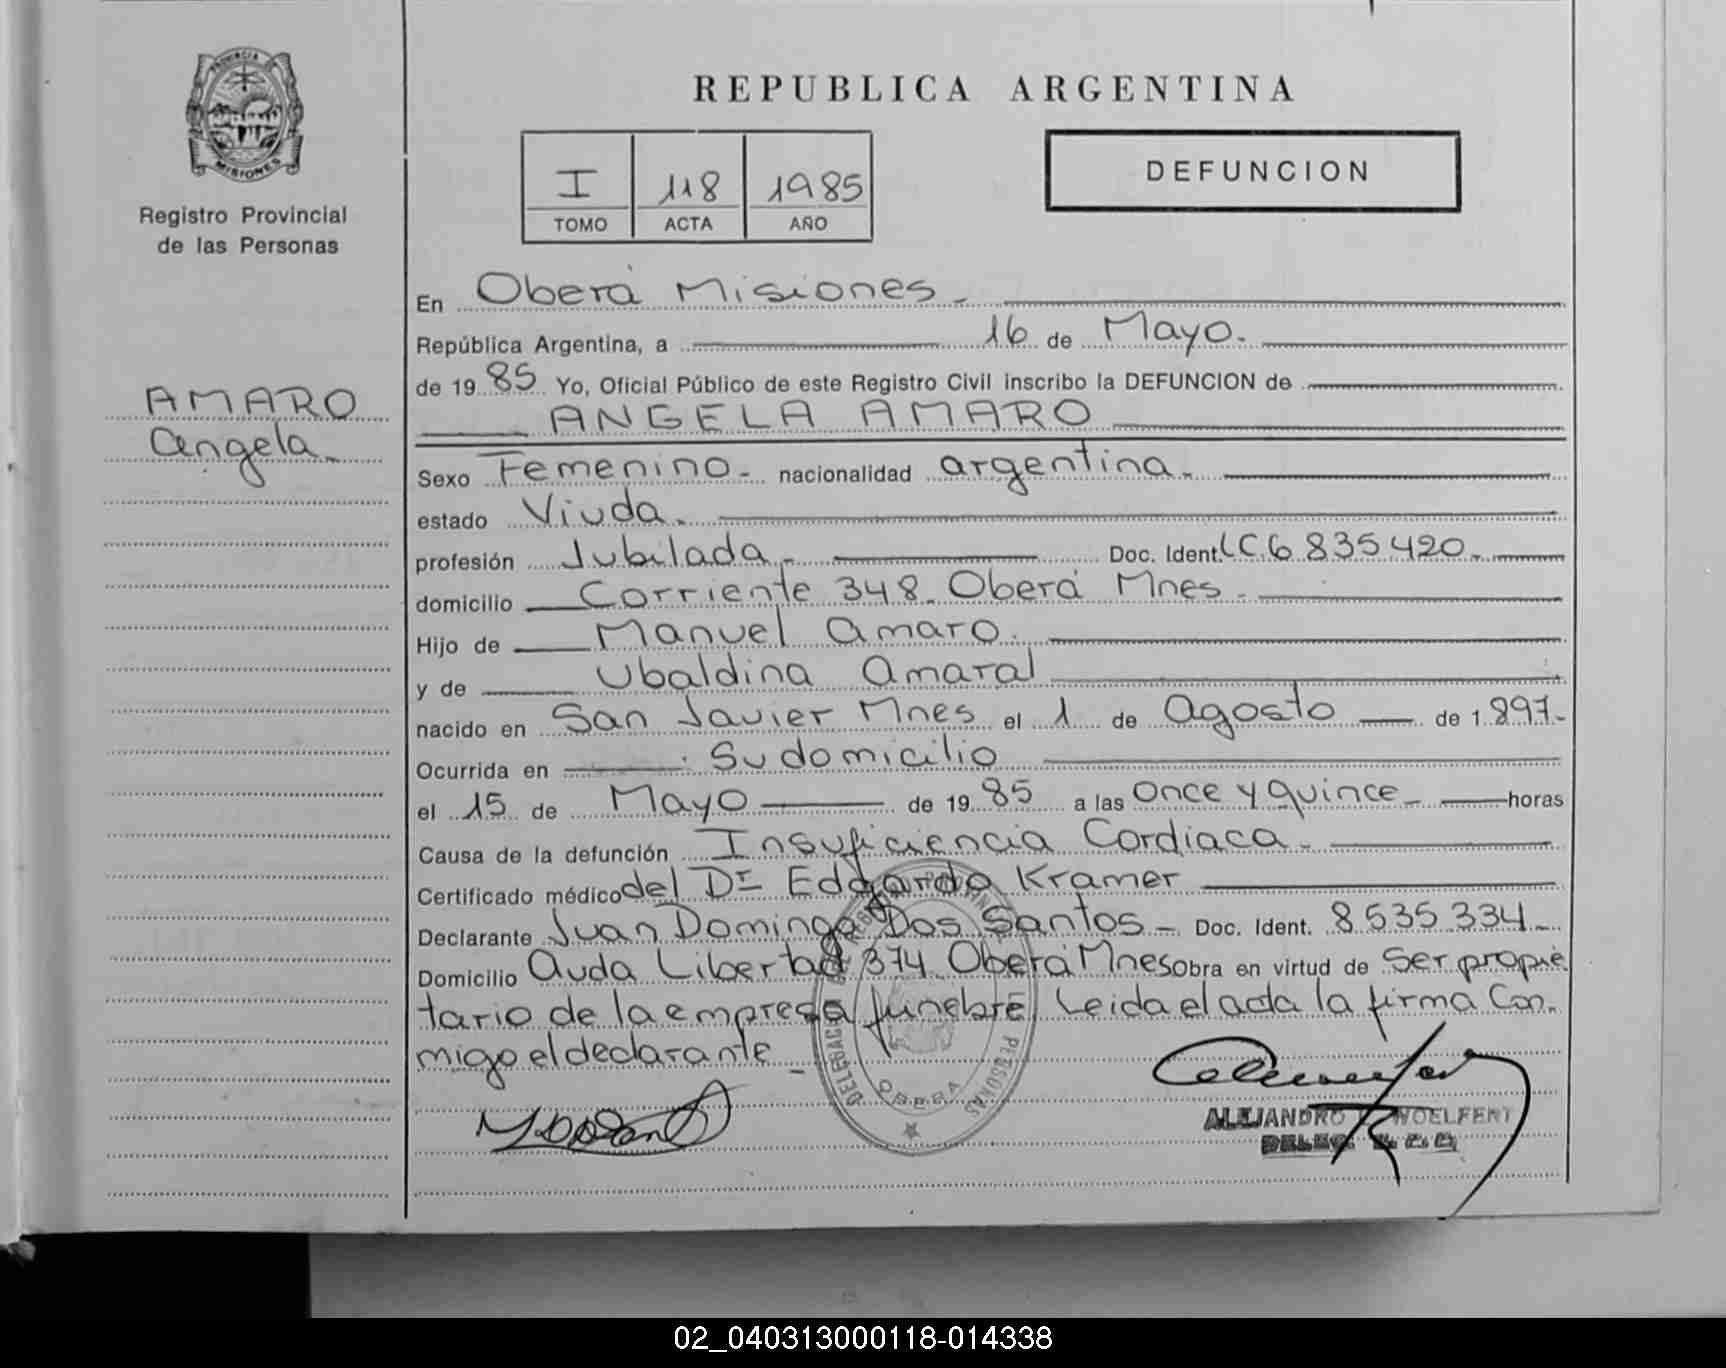 PROVINCIA DE
MISIONES
Registro Provincial
de las Personas
AMARO
Angela.
REPUBLICA ARGENTINA
I 118 1985
TOMO ACTA AÑO
DEFUNCION
En Oberá Misiones.
República Argentina, a 16 de Mayo.
de 19 85 Yo, Oficial Público de este Registro Civil inscribo la DEFUNCION de
ANGELA AMARO
Sexo Femenino - nacionalidad argentina.
estado Viuda.
profesión Jubilada - Doc. Ident. LC 6 835 420.
domicilio Corriente 348. Oberá Mnes.
Hijo de Manuel Amaro.
y de Ubaldina Amaral
nacido en San Javier Mnes el 1 de Agosto de 1.897-
Ocurrida en Su domicilio
el 15 de Mayo de 19 85 a las Once y quince horas
Causa de la defunción Insuficiencia Cardiaca.
Certificado médico del Dr Edgardo Kramer
Declarante Juan Domingo Dos Santos - Doc. Ident. 8 535 334
Domicilio Avda Libertad 374 Oberá Mnes obra en virtud de Ser propie
tario de la empresa fúnebre Leida el acta la firma Con.
migo el declarante
OBERA
ALEJANDRO WOELFERT